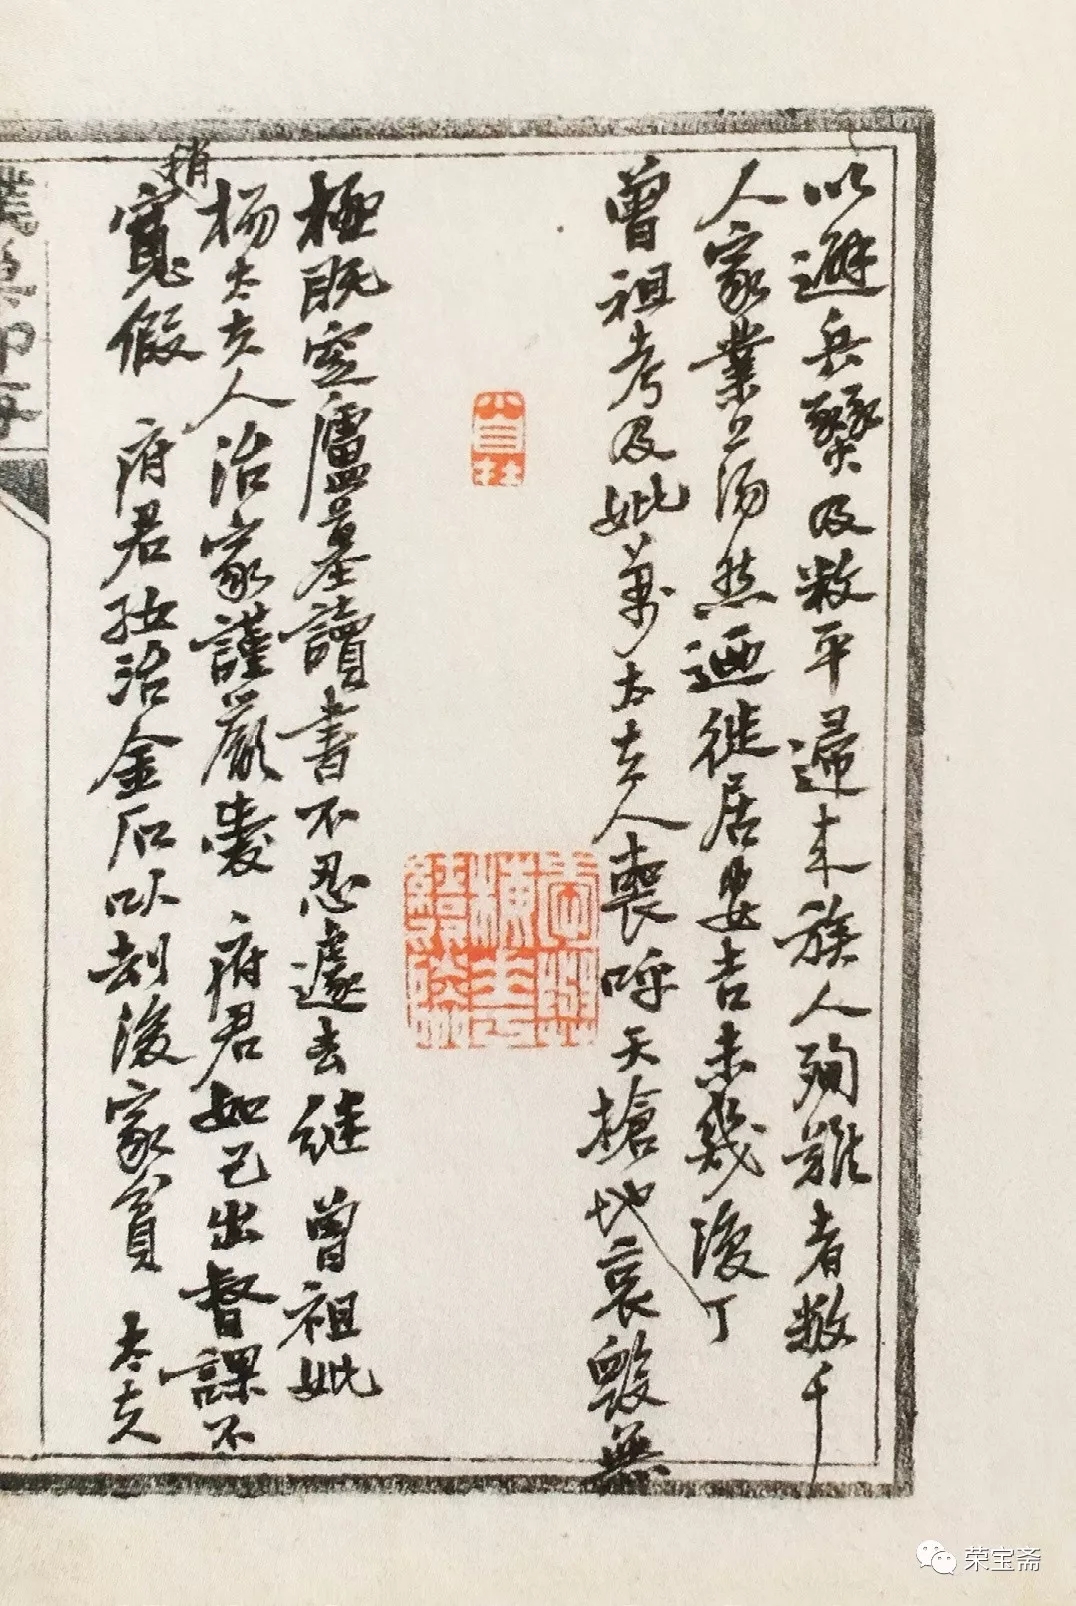 以避兵燹及敉平歸來族人殉難者數千
人家業亦蕩然迺徙居安吉未幾復丁
曾祖考及妣萬太夫人喪呼天搶地哀毀無
極既窆廬墓讀書不忍遽去繼 曾祖妣
楊太夫人治家謹嚴愛 府君如己出督課不
稍
寬假 府君攻治金石以劫後家貧 太夫
荣宝斋